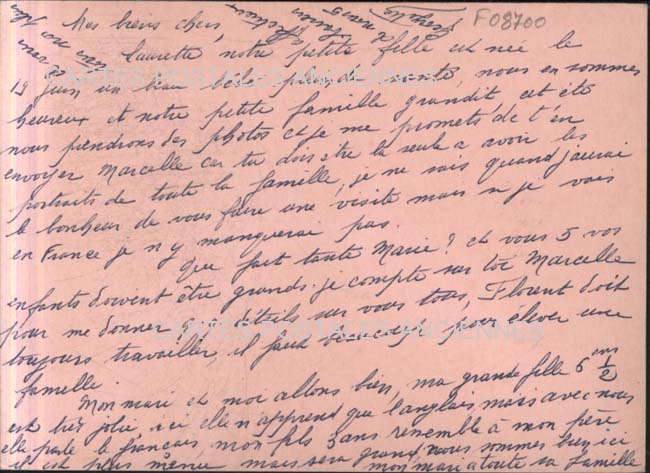 F08700
Mes biens chers,
Laurette, notre petite fille est née le
19 juin un beau bébé plein de santé, nous en sommes
heureux et notre petite famille grandit, cet été
nous prendrons des photos et je me promets de t'en
envoyer Marcelle car tu dois etre la seule a avoir les
portraits de toute la famille, je ne sais quand j'aurai
le bonheur de vous faire une visite mais si je vais
en France je n'y manquerai pas.
Que fait tante Marie? et vous 5 vos
enfants doivent être grands. je compte sur toi Marcelle
pour me donner détails sur vous tous, Florent doit
toujours travailler, il faut beaucoup pour elever une
famille.
Mon mari et moi allons bien, ma grande fille 6 ans 1/2
est très jolie ici elle n'apprend que l'anglais mais avec nous
elle parle le français, mon fils 3 ans ressemble a mon père
il est plus mais sera grand, nous sommes ici
mon mari a toute sa famille
CARTES POSTALES ANCIENNES
CARTES POSTALES ANCIENNES